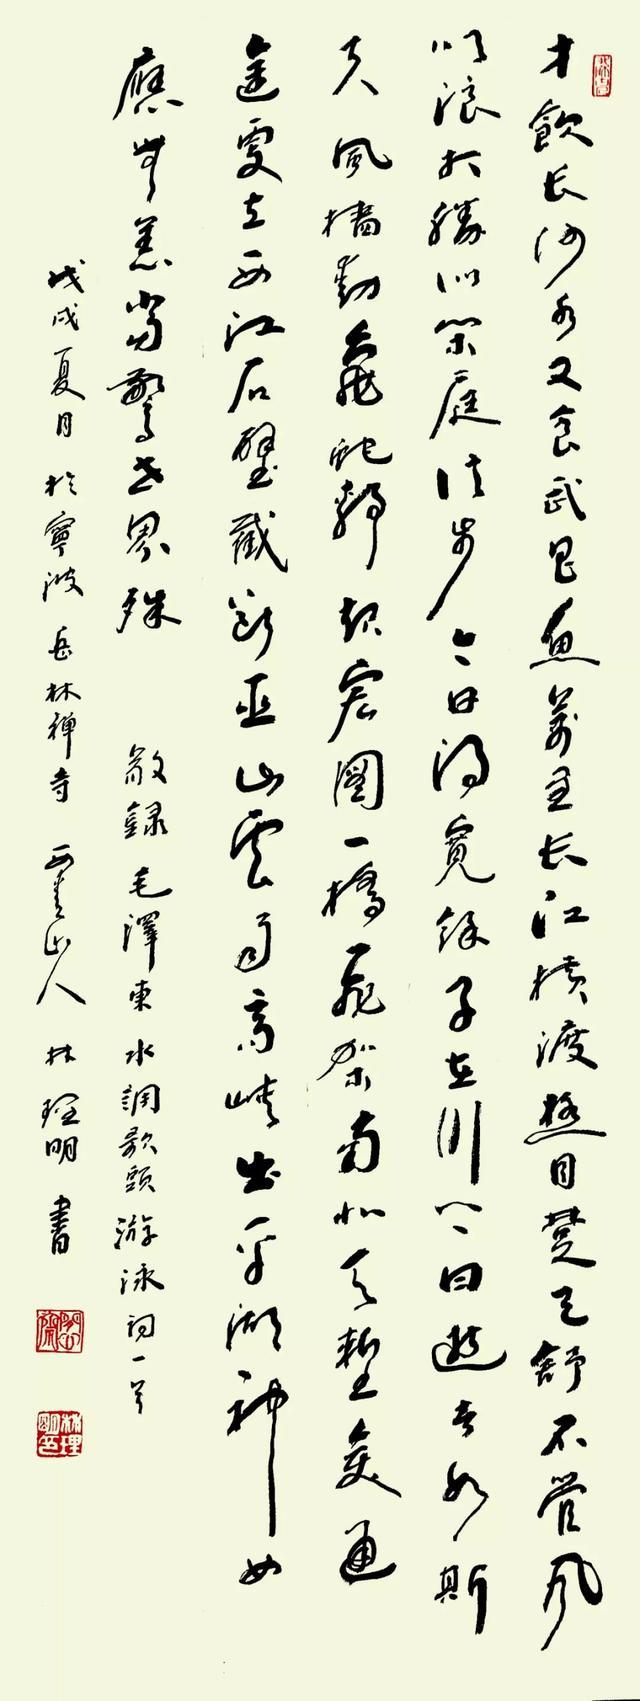 才飲长沙水又食武昌魚萬里长江横渡極目楚天舒不管风
吹浪打勝似閑庭信步今日得寬餘子在川上曰逝者如斯
夫風檣動龜蛇静起宏圖一橋飛架南北天塹变通
途更立西江石壁截断巫山雲雨高峡出平湖神女
應無恙當驚世界殊
敬録毛澤東水調歌頭游泳词一首
戊戌夏月於寧波岳林禅寺西山人林理明書
林理明印